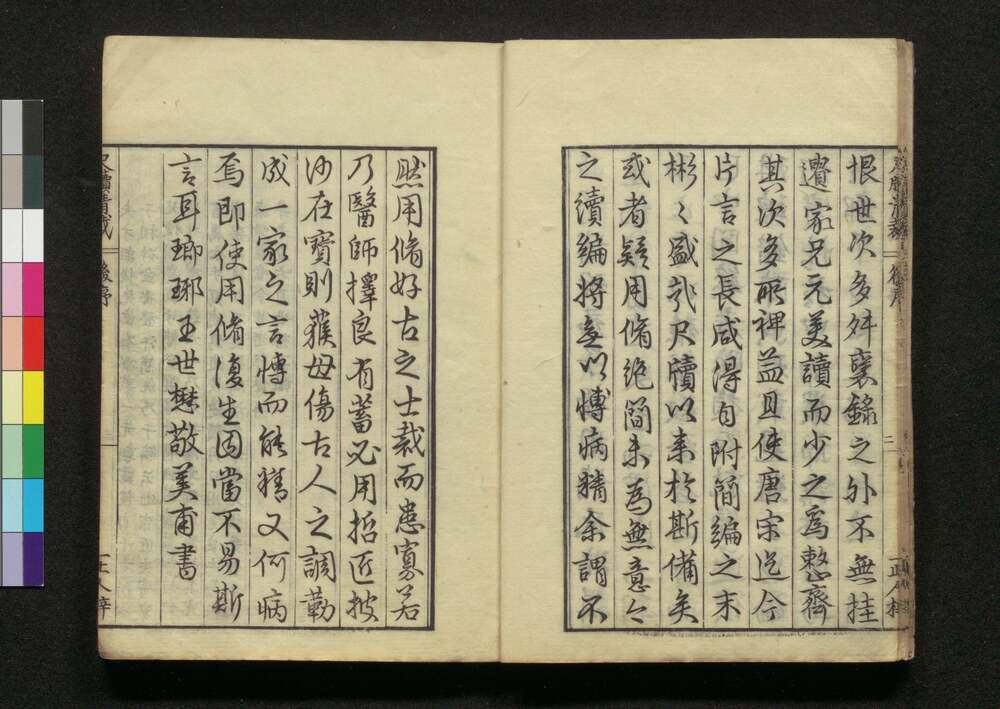 恨世次多舛裒錄之外不無挂
遺家兄元美讀而少之為整齊
其次多所裨益且使唐宋迄今
片言之長咸得自附簡編之末
彬〻盛哉尺牘以來於斯備矣
或者疑用脩絶簡未為無意今
之續編將無以慱病精余謂不
然用脩好古之士裁而患寡若
乃醫師擇良有蓄必用哲匠披
沙在寶則獲毋傷古人之調勒
成一家之言慱而能精又何病
焉即使用脩復生固當不易斯
言耳瑯琊王世懋敬美甫書
後序